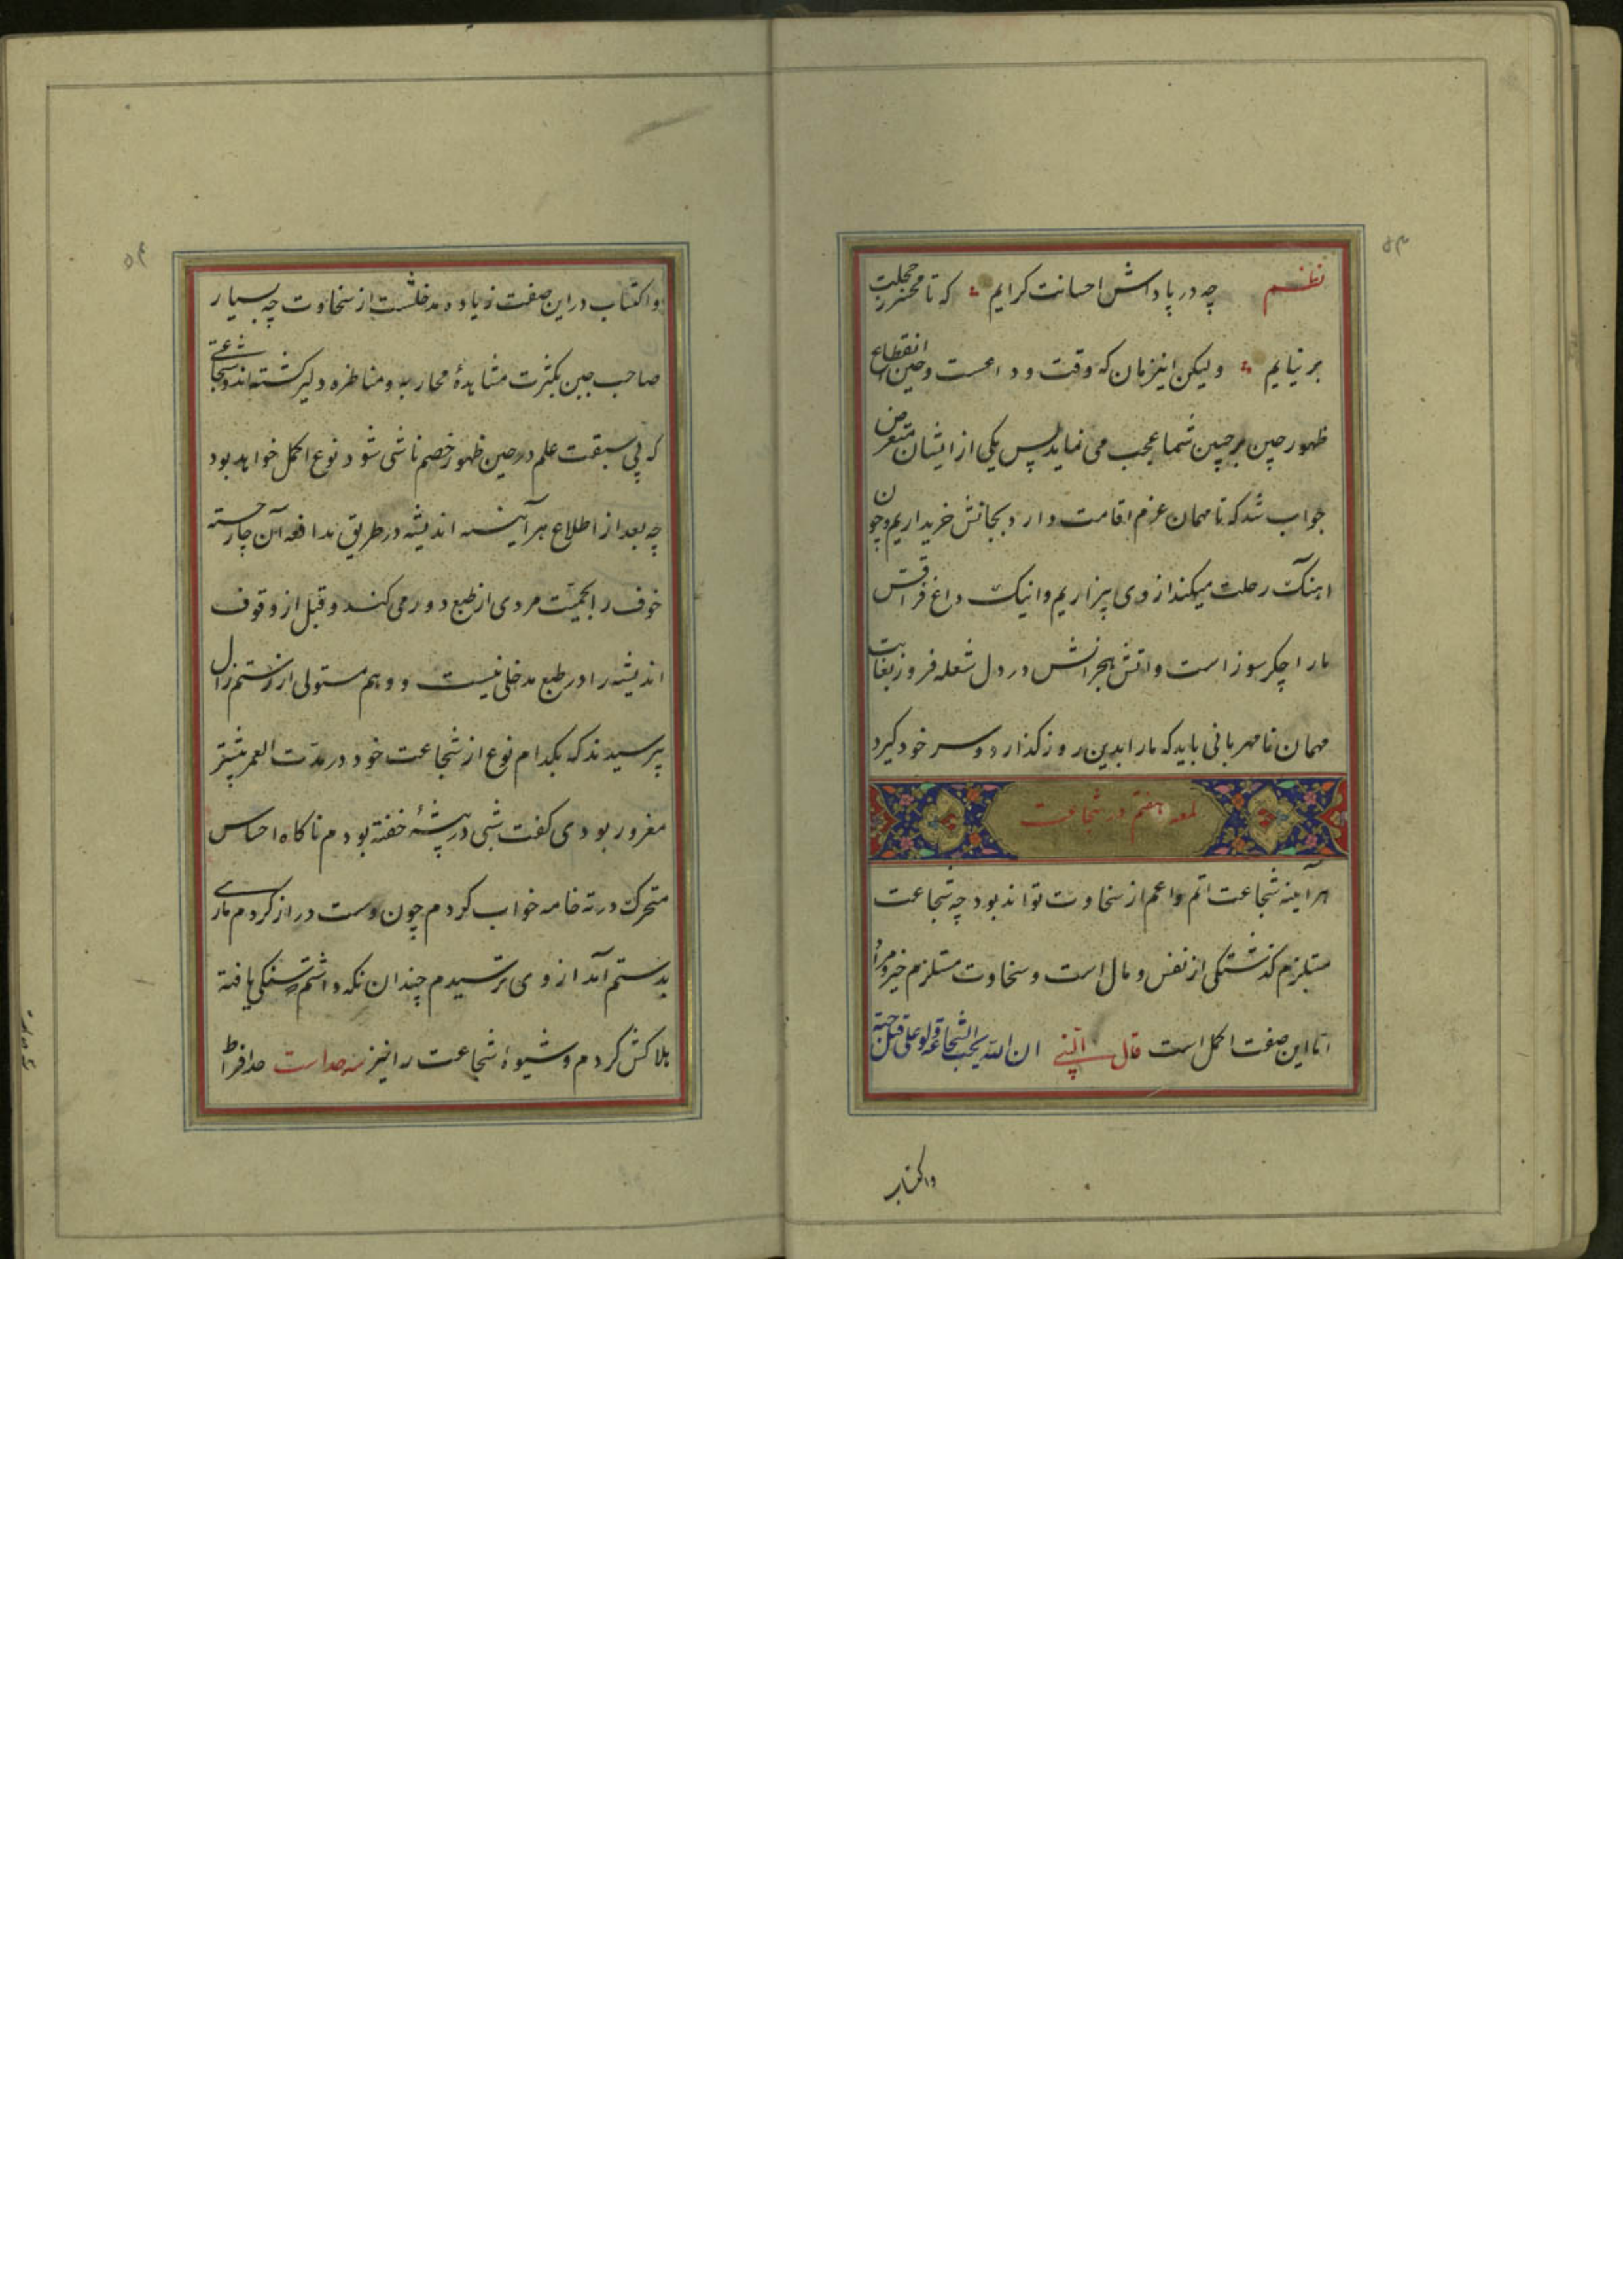 نظم چه در پاداش احسانت کرایم که تا محشر ز خجلت
بر نیایم ولیکن اینزمان که وقت وداعست وحین انقطاع
ظهور چین بر جبین شما عجب می نماید پس یکی از ایشان متعرض
جواب شد که تا مهمان عزم اقامت دارد بجانش خریداریم وچون
اهنک رحلت میکند از وی بیزاریم واینک داغ فراقش
مارا جکر سوز است واتش هجرانش در دل شعله فروز بغایت
مهمان نامهربانی باید که مارا بدین روز کذارد وسر خود کیرد
لمعه هفتم در شجاعت
هر آینه شجاعت اتم واعم از سخاوت تواند بود چه شجاعت
مستلزم کذشتکی از نفس ومال است وسخاوت مستلزم خیر ومبرا
اما این صفت اکمل است قال النبی ان الله یحب الشجاعة ولو علی قتل حیة
واکتساب
واکتساب در این صفت زیاده مدخلست از سخاوت چه بسیار
صاحب جبن بکثرت مشاهدهٔ محاربه ومناظره دلیر کشته اند وشجاعتی
که بی سبقت علم در حین ظهور خصم ناشی شود نوع اکمل خواهد بود
چه بعد از اطلاع هر آینه اندیشه در طریق مدافعه آن چاره جسته
خوف را بحمیت مردی از طبع دور می کند وقبل از وقوف
اندیشه را در طبع مدخلی نیست و وهم مستولی از رستم زال
پرسیدند که بکدام نوع از شجاعت خود در مدت العمر بیشتر
مغرور بودی کفت شبی در بیشهٔ خفته بودم ناکاه احساس
متحرک در ته خامه خواب کردم چون دست دراز کردم ماری
بدستم آمد از وی نترسیدم چندان نکه داشتم سنکی یافته
هلاکش کردم وشیوهٔ شجاعت را نیز سه حد است حد افراط